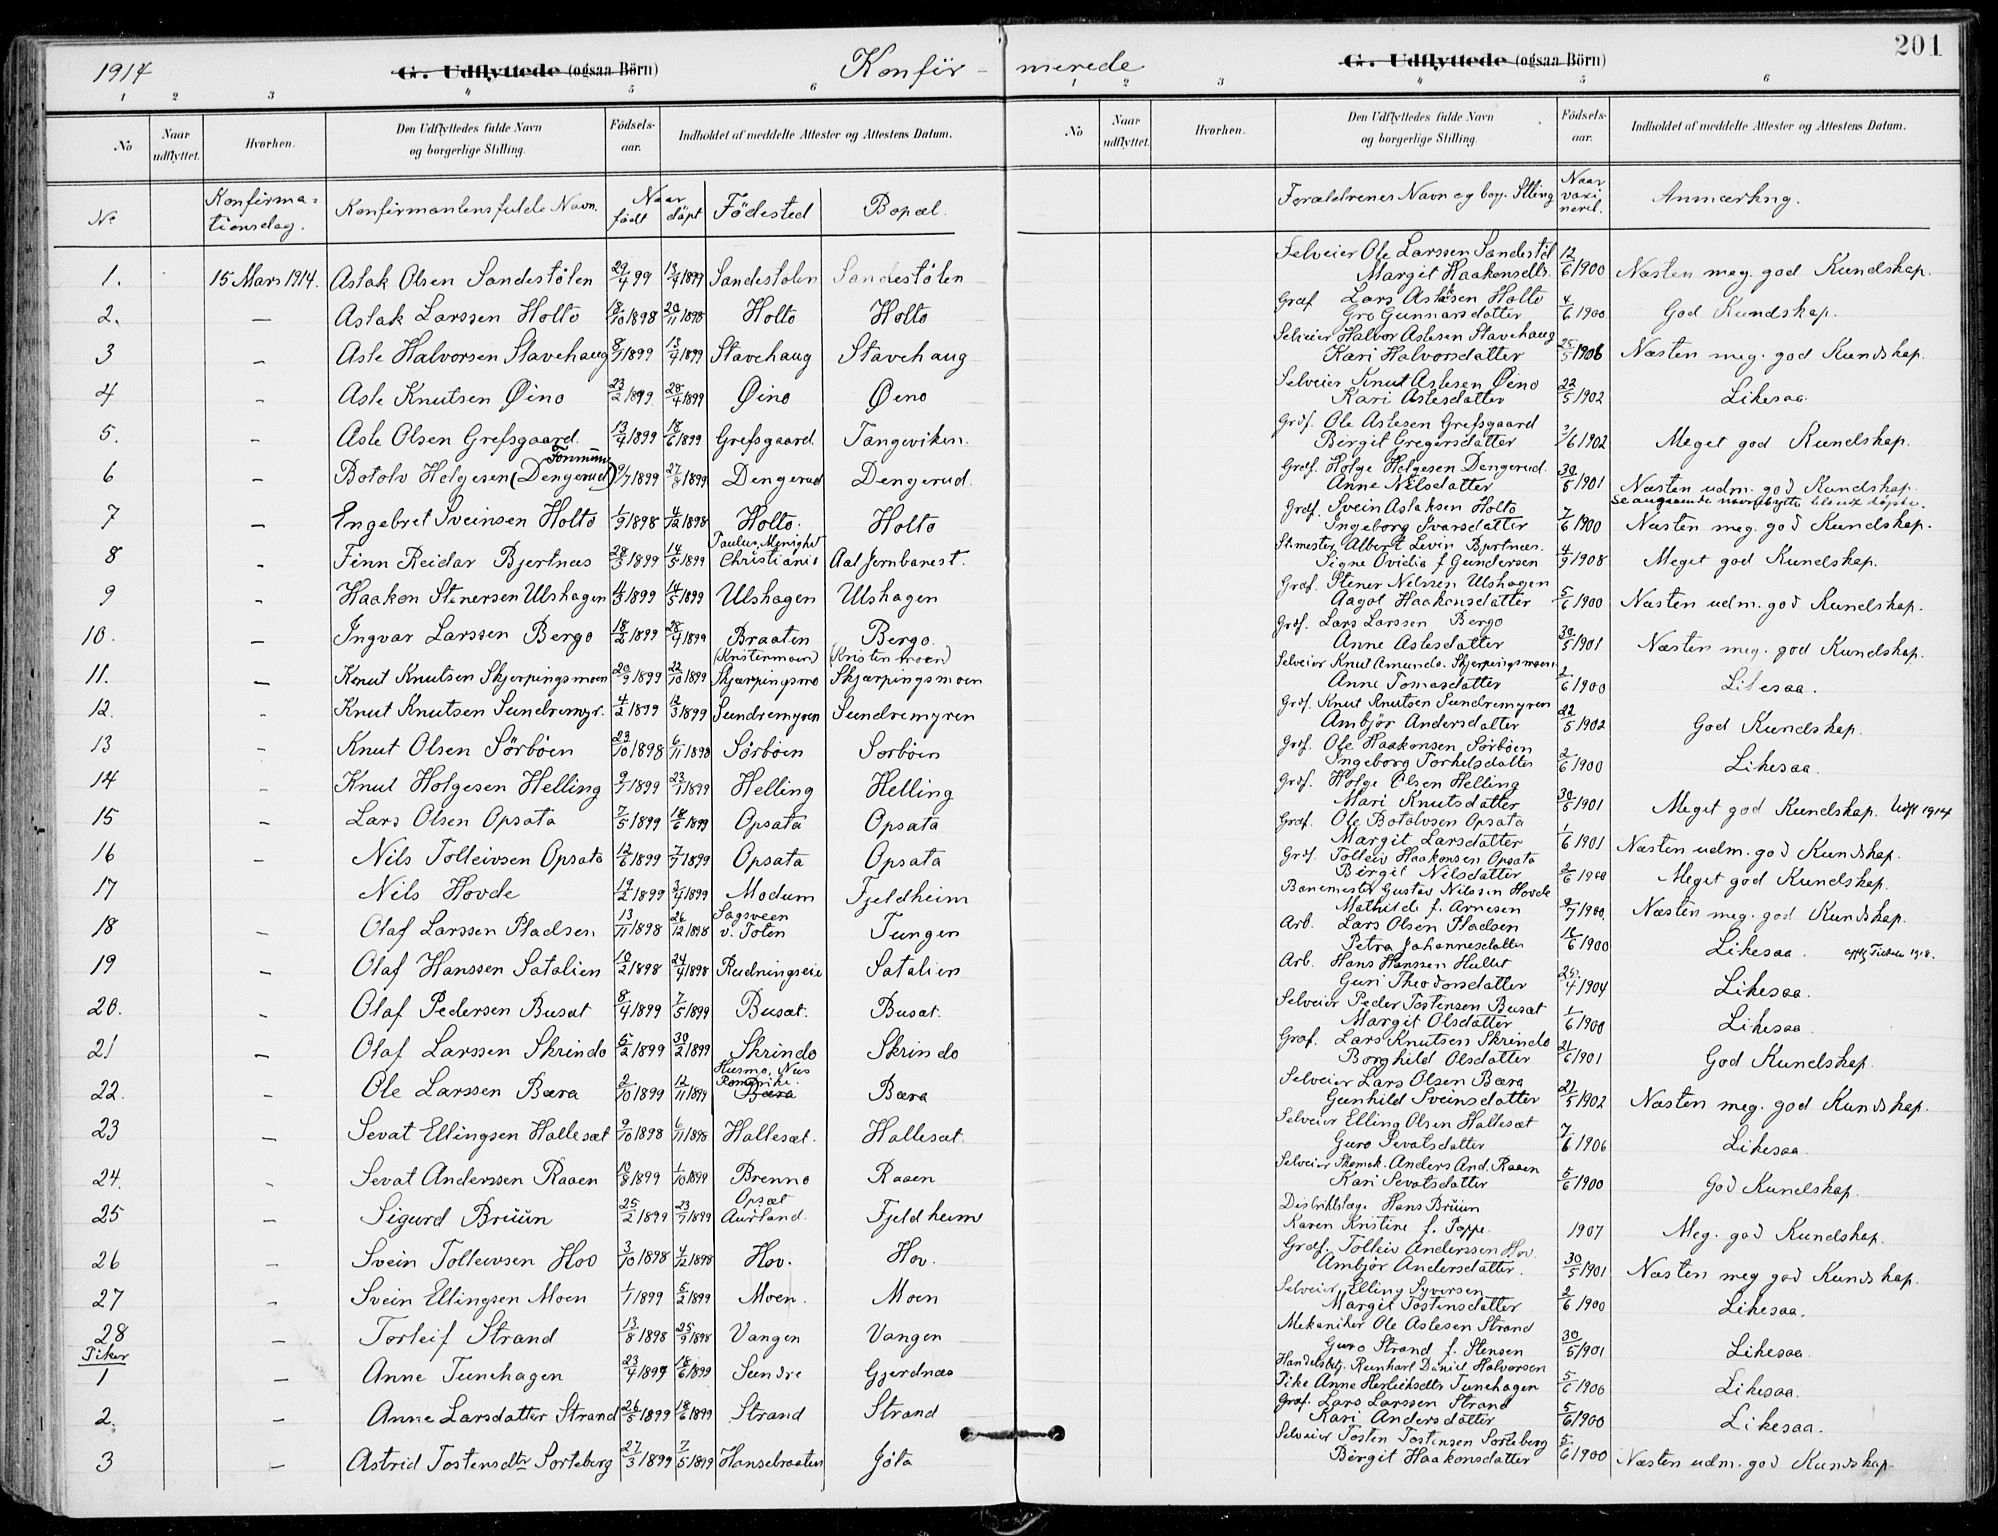 201
1914 G. Udflyttede (ogsaa Börn) Konfir - merede G. Udflyttede (ogsaa Börn)
1 2 3 4 5 6 1 2 3 4 5 6
No Naar udflyttet. Hvorhen. Den Udflyttedes fulde Navn og borgerlige Stilling. Födsels-aar. Indholdet af meddelte Attester og Attestens Datum. No Naar udflyttet. Hvorhen. Den Udflyttedes fulde Navn og borgerlige Stilling. Födsels-aar. Indholdet af meddelte Attester og Attestens Datum.
No Konfirma-tionsdag. Konfirmantens fulde Navn. Naar født døpt Fødested Bopæl. Forældrenes Navn og borg. Stlling Naar Anmærkng.
1. 15 Mars 1914. Aslak Olsen Sandestølen 29/4 99 13/4 1899 Sandestolen Sandestølen Selveier Ole Larssen Sandestøl Margit Haakensdtr. 12/6 1900 Næsten meg. god Kundskap.
2. — Aslak Larssen Holto 18/10 1898 20/11 1898 Holto Holto Græf Lars Aslaksen Holto Gro Gunnarsdatter 4/6 1900 God Kundskap.
3 — Asle Halvorsen Stavehaug 8/1 1899 13/4 1899 Stavehaug Stavehaug Selveier Halvor Aslesen Stavehaug Kari Halvorsdatter 25/5 1906 Næsten meg. god Kundskap.
4 — Asle Knutsen Øino 23/2 1899 28/4 1899 Øino Øeno Selveier Knut Aslesen Øino Kari Aslesdatter 22/5 1902 Likesaa.
5. — Asle Olsen Grefsgaard. 13/4 1899 18/6 1899 Grefsgaard. Tangeviken. Gróf. Ole Aslesen Grefsgaard Birgit Gregersdatter 1/6 1902 Meget god Kundskap.
6 — Botolv Helgesen (Dengerud) 9/7 1899 27/8 1899 Dengerud Dengerud. Græf. Holge Holgesen Dengerud. Anne Nilsdatter 30/5 1901 Næsten udm. god Kundskap.
7 — Engebret Sveinsen Holto 1/9 1898 4/12 1898 Holto. Holto Græf. Svein Aslaksen Holto Ingeborg Ivarsdatter 7/6 1900 Næsten meg. god Kundskap.
8 — Finn Reidar Bjertnæs 28/3 1899 14/5 1899 Paulus Menighet Christiania Aal Jernbanest. St.mester Albert Levin Bjertnæs. Signe Ovidia f Gundersen 4/9 1908 Meget god Kundskap.
9 — Haakon Stenersen Ulshagen 4/3 1899 14/5 1899 Ulshagen Ulshagen Græf. Stener Nilssen Ulshagen Aagot Haakonsdatter 5/6 1900 Næsten udm. god Kundskap.
10. — Ingvar Larssen Bergo 18/2 1899 28/4 1899 Braaten (Kristenmoen) Bergo. (Kristenmoen) Gróf. Lars Larssen Bergo Anne Aslesdatter 30/5 1901 Næsten meg. god Kundskap.
11. — Knut Knutsen Skjerpingsmoen 20/9 1899 22/10 1899 Skjærpingsmo Skjærpingsmoen Selveier Knut Amunds. Skjerpingsmoen Anne Tomasdatter 2/6 1900 Likesaa.
12. — Knut Knutsen Sundremyr. 4/2 1899 12/3 1899 Sundremyren Sundremyren Gróf. Knut Knutsen Sundremyren Ambjör Andersdatter 22/5 1902 God Kundskap.
13 — Knut Olsen Sörböen 23/10 1898 6/11 1898 Sörböen Sorböen Gróf. Ole Haakonsen Sörböen Ingeborg Torkelsdatter 2/6 1900 Likesaa.
14 — Knut Holgesen Helling 9/1 1899 23/1 1899 Helling Helling Græf. Holge Olsen Helling Mari Knutsdatter 30/5 1901 Meget god Kundskap. Utfl 1914
15 — Lars Olsen Opsata 7/5 1899 18/6 1899 Opsata Opsata Græf. Ole Botolvsen Opsata Margit Larsdatter 1/6 1901 Næsten udm. god Kundskap.
16 — Nils Tolleivsen Opsata 12/6 1899 7/7 1899 Opsata Opsata Gróf. Tolleiv Haakonsen Opsata Birgit Nilsdatter 2/6 1900 Meget god Kundskap.
17 — Nils Hovde 19/2 1899 3/4 1899 Modum Fjeldheim Banemester Gustav Nilssen Hovde Mathilde f. Arnesen 9/7 1900. Næsten meg. god Kundskap.
18 — Olaf Larssen Pladsen 13/11 1898 26/12 1898 Sagsveen v. Toten Tungen Arb. Lars Olsen Pladsen Petra Johannesdatter 18/6 1900 Likesaa.
19 — Olaf Hanssen Satalien 10/2 1898 24/4 1898 Rudningseie Satalien Arb. Hans Hanssen Hullet Guri Theodorsdatter 25/4 1904 Likesaa.
20. — Olaf Pedersen Busæt 8/4 1899 7/5 1899 Busæt. Busæt. Selveier Peder Tostensen Busæt Margit Olsdatter 1/6 1900 Likesaa.
21 — Olaf Larssen Skrindo 5/2 1899 30/2 1899 Skrindo Skrindo Græf. Lars Knutsen Skrindo Borghild Olsdatter 21/6 1901 God Kundskap.
22. — Ole Larssen Bæra 2/10 1899 12/11 1899 Husmo. Nes Romerike. Bæra Bæra Selveier Lars Olsen Bæra Gunhild Sveinsdatter 21/5 1902 Næsten meg. god Kundskap.
23 — Sevat Ellingsen Hallesæt 9/10 1898 6/11 1898 Hallesæt. Hallesæt. Selveier Elling Olsen Hallesæt Guro Sevatsdatter 7/6 1906 Likesaa.
24. — Sevat Anderssen Raaen 10/8 1899 1/10 1899 Brenno Raaen Selveier Skomak. Anders And. Raaen Kari Sevatsdatter 5/6 1900 God Kundskap.
25 — Sigurd Brüün 25/2 1899 23/7 1899 Opsæt Aurland. Fjeldheim Distriktslæge Hans Brüün Karen Kristine f. Poppe. 1907 Meg. god Kundskap.
26 — Svein Tolleivsen Hoo 3/10 1898 4/12 1898 Hov. Hov. Græf. Tolleiv Anderssen Hov. Ambjør Andersdatter. 30/5 1901 Næsten meg god Kundskap.
27 — Svein Ellingsen Moen 1/1 1899 5/2 1899 Moen. Moen Selveier Elling Syversen Margit Tostensdatter 2/6 1900 Likesaa.
28 — Torleif Strand 13/8 1898 25/9 1898 Vangen Vangen Mekaniker Ole Aslesen Strand Guro Strand f. Stensen 30/5 1901 Likesaa.
Piker
1 — Anne Tunehagen 23/4 1899 18/6 1899 Sundre Gjerdnæs Handelsbtj. Reinhart Daniel Halvorsen Pike Anne Herleiksdtr Tunehagen 5/6 1900 Likesaa.
2. — Anne Larsdatter Strand 26/5 1899 18/6 1899 Strand Strand Græf. Lars Larssen Strand Kari Andersdatter 5/6 1900 Likesaa.
3 — Astrid Tostensdtr Sorteberg 27/3 1899 7/5 1899 Hansebraaten Jóla Selveier Tosten Tostensen Sorteberg Birgit Haakonsdatter 5/6 1900 Næsten udm. god Kundskap.